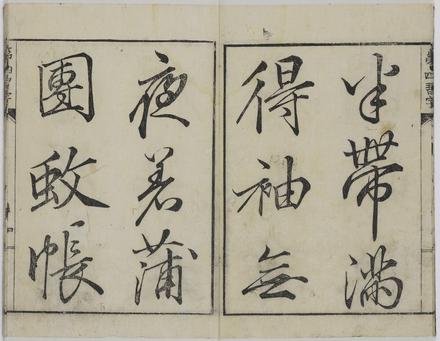 半帶滿
得袖無
夜着蒲
團蚊帳